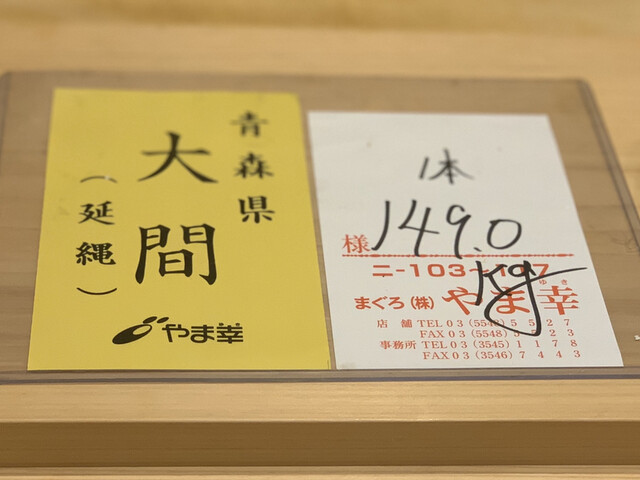 青森県
大間
(延縄)
やま幸
1本
149.0
kg
様
ニ-103~107
まぐろ(株)やま幸
ゆき
店舗 TEL03(5548)5527
FAX03(5548)5523
事務所 TEL03(3545)1178
FAX03(3546)7443